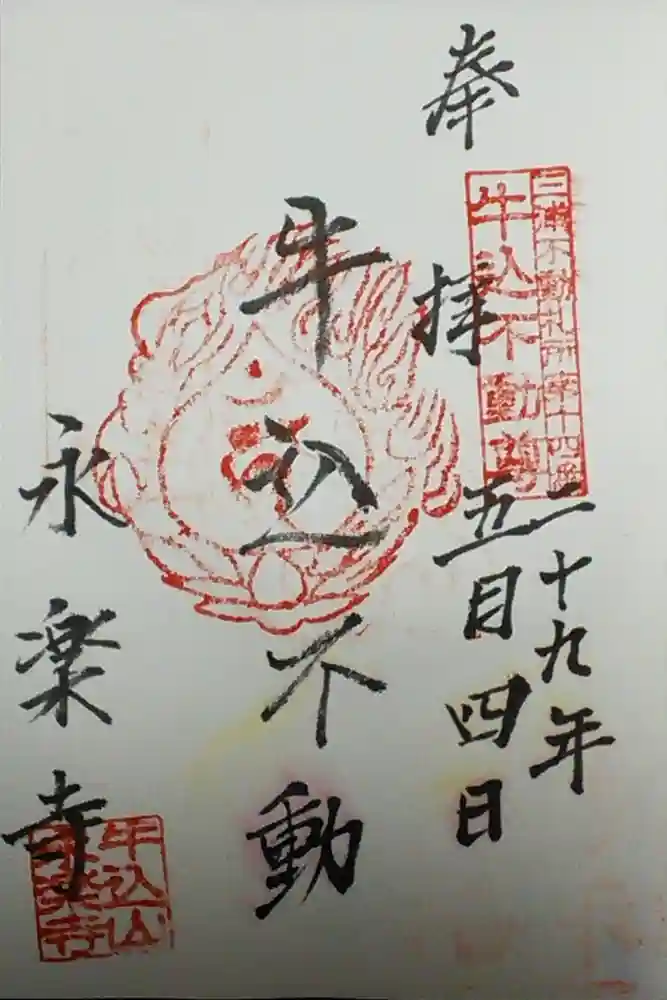 奉拝
三浦不動札所第十四番
牛込不動尊
二十九年
五月四日
牛込不動
永楽寺
牛込山
永楽寺